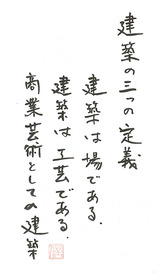 建築の三つの定義
建築は場である.
建築は工芸である.
商業芸術としての建築